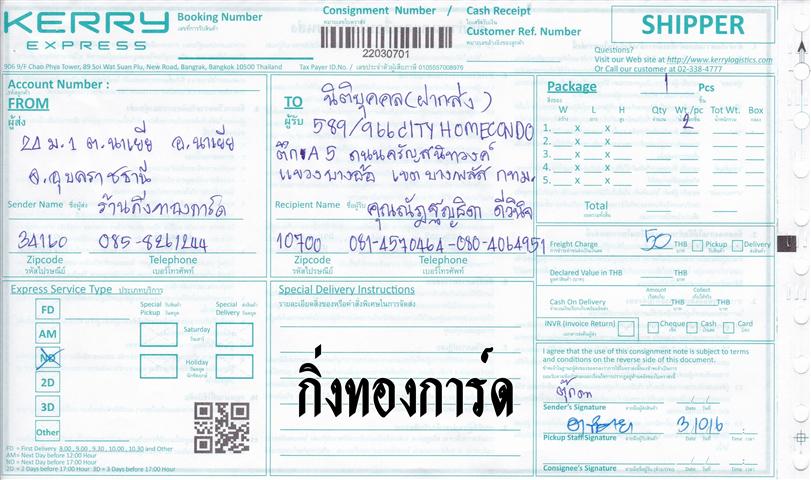 KERRY
EXPRESS
Booking Number
เลขที่การรับสินค้า
Consignment Number / Cash Receipt
หมายเลขใบตราส่ง
ใบเสร็จรับเงิน
Customer Ref. Number
หมายเลขอ้างอิงของลูกค้า
22030701
SHIPPER
Questions?
Visit our Web site at http://www.kerrylogistics.com
Or Call our customer at 02-338-4777
906 9/F Chao Phya Tower, 89 Soi Wat Suan Plu, New Road, Bangrak, Bangkok 10500 Thailand
Tax Payer ID.No. / เลขประจำตัวผู้เสียภาษี 0105557008976
Account Number :
รหัสลูกค้า
FROM
ผู้ส่ง
21 ม.1 ต.นาเยีย อ.นาเยีย
จ.อุบลราชธานี
Sender Name ชื่อผู้ส่ง ร้านกิ่งทองการ์ด
34160 085-8261244
Zipcode Telephone
รหัสไปรษณีย์ เบอร์โทรศัพท์
TO นิติบุคคล(ฝากส่ง)
ผู้รับ 589/966 CITY HOME CONDO
ตึก A5 ถนนจรัญสนิทวงศ์
แขวงบางอ้อ เขต บางพลัด กทม.
Recipient Name ชื่อผู้รับ
10700 081-4570464-080-4064951
Zipcode Telephone
รหัสไปรษณีย์ เบอร์โทรศัพท์
Package 1 Pcs
สิ่งของ ชิ้น
W L H Qty Wt./pc Tot Wt. Box
กว้าง ยาว สูง จำนวน น้ำหนักรวม กล่อง
1. X X 2
2. X X
3. X X
4. X X
5. X X
Total
Freight Charge 50 THB Pickup Delivery
Declared Value in THB THB
Amount Collect
Cash On Delivery THB
INVR (Invoice Return) Cheque Cash Card
I agree that the use of this consignment note is subject to terms
and conditions on the reverse side of this document.
Sender's Signature
3/0/6
Pickup Staff Signature
Consignee's Signature
Express Service Type ประเภทบริการ
Special Pickup
Special Delivery
FD
AM
ND
2D
3D
Other
Saturday
วันเสาร์
Holiday
วันหยุด
FD = First Delivery 8.00 , 9.00 , 9.30 , 10.00, 10.30 and Other
AM= Next Day before 12:00 Hour
ND= Next Day before 17:00 Hour
2D = 2 Days before 17:00 Hour 3D = 3 Days before 17:00 Hour
Special Delivery Instructions
รายละเอียดสิ่งของหรือคำสั่งพิเศษในการจัดส่ง
กิ่งทองการ์ด